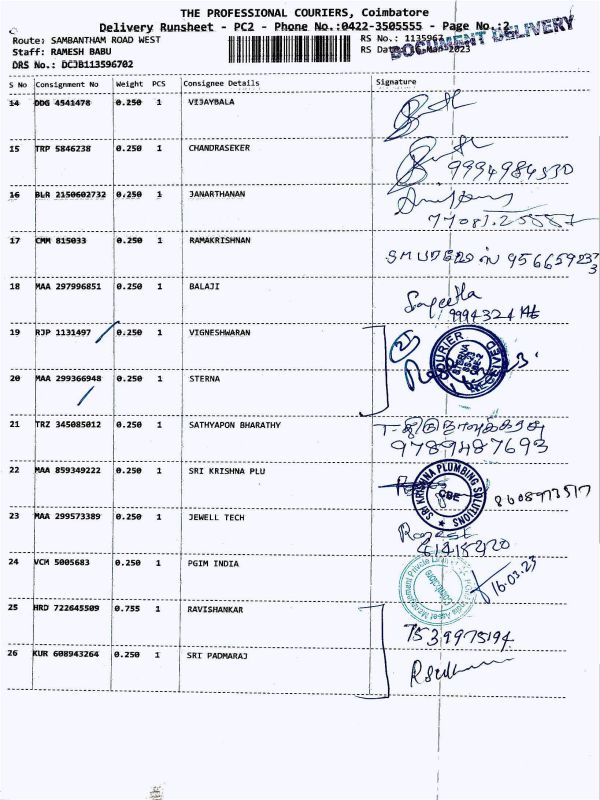 THE PROFESSIONAL COURIERS, Coimbatore
Delivery Runsheet - PC2 - Phone No.:0422-3505555 - Page No.:2
DOCUMENT DELIVERY
Route: SAMBANTHAM ROAD WEST
RS No.: 1135967
Staff: RAMESH BABU
RS Date
2023
DRS No.: DCJB113596702
S No Consignment No Weight PCS Consignee Details Signature
14 DDG 4541478 0.250 1 VIJAYBALA
15 TRP 5846238 0.250 1 CHANDRASEKER
9994984530
16 BLR 2150602732 0.250 1 JANARTHANAN
17 CMM 815033 0.250 1 RAMAKRISHNAN
18 MAA 297996851 0.250 1 BALAJI
19 RJP 1131497 0.250 1 VIGNESHWARAN
COURIER
RECEIVED
20 MAA 299366948 0.250 1 STERNA
21 TRZ 345085012 0.250 1 SATHYAPON BHARATHY
9789487693
22 MAA 859349222 0.250 1 SRI KRISHNA PLU
SRI KRISHNA PLUMBING SOLUTIONS
CBE
8608973517
23 MAA 299573389 0.250 1 JEWELL TECH
24 VCM 5005683 0.250 1 PGIM INDIA
16.03.23
25 HRD 722645509 0.755 1 RAVISHANKAR
7539975194
26 KUR 608943264 0.250 1 SRI PADMARAJ